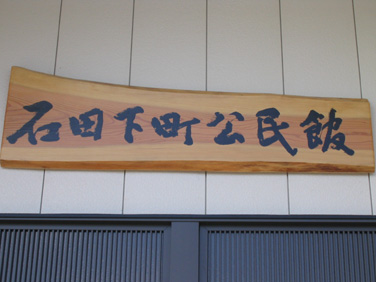 石田下町公民館